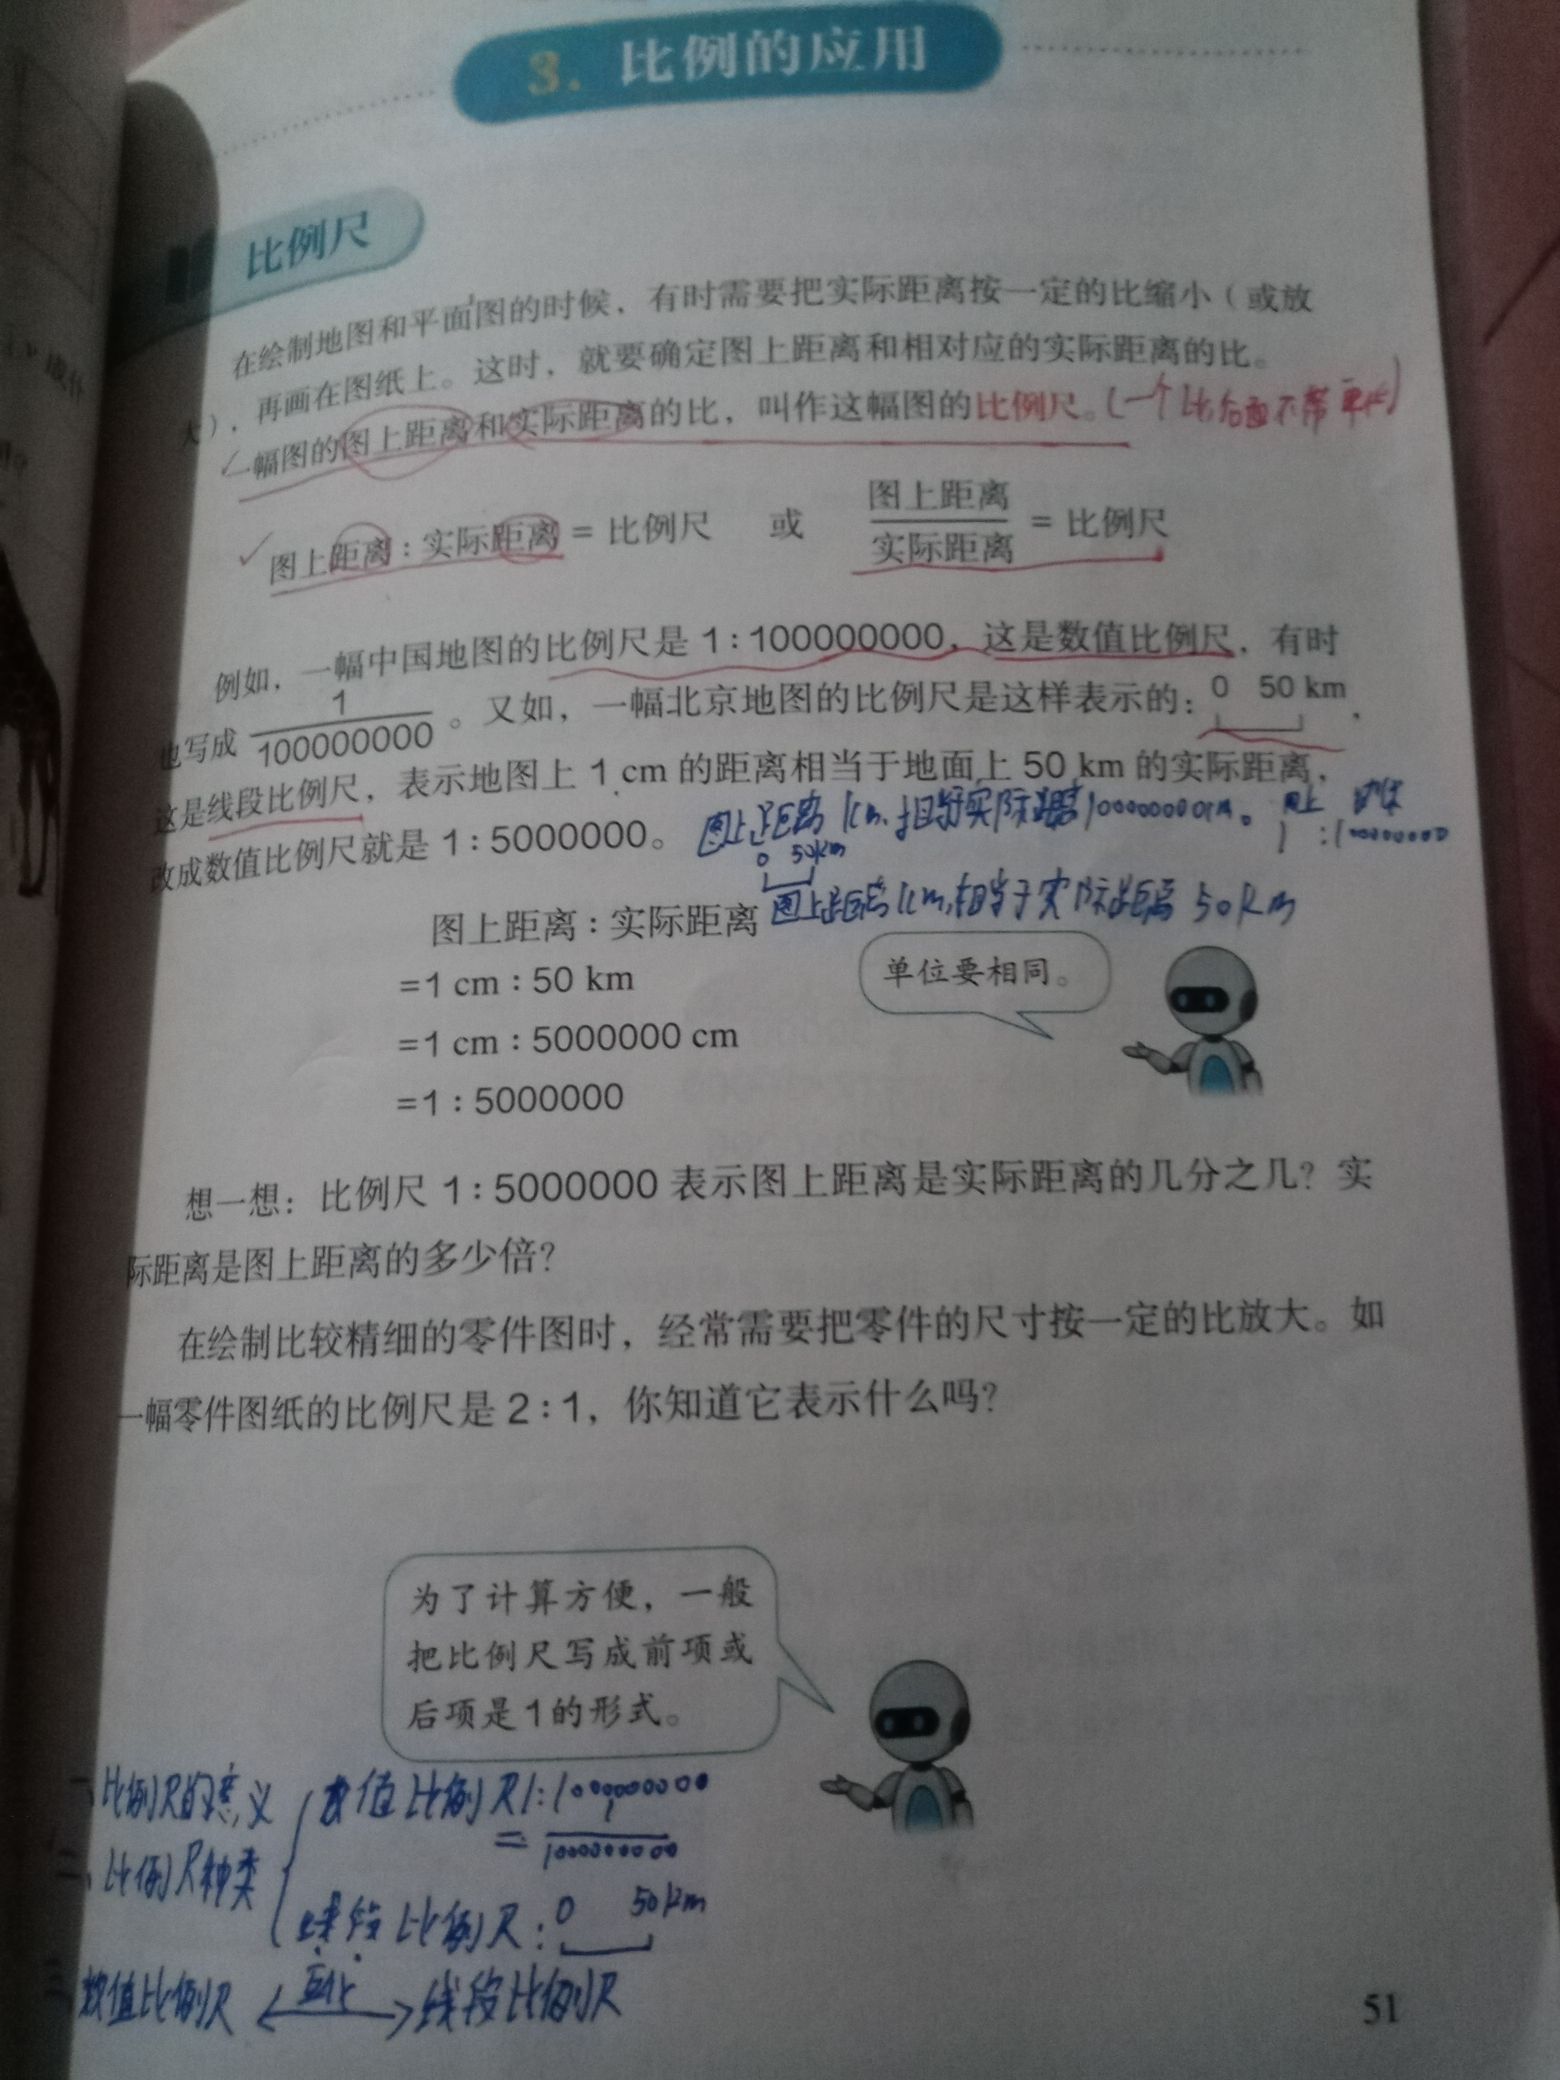 3. 比例的应用
比例尺
在绘制地图和平面图的时候，有时需要把实际距离按一定的比缩小（或放
大），再画在图纸上。这时，就要确定图上距离和相对应的实际距离的比。
一幅图的图上距离和实际距离的比，叫作这幅图的比例尺。(一个比后面不带单位)
图上距离：实际距离 = 比例尺 或 图上距离/实际距离 = 比例尺
例如，一幅中国地图的比例尺是 1:100000000，这是数值比例尺，有时
也写成 1/100000000 。又如，一幅北京地图的比例尺是这样表示的：0 50 km，
这是线段比例尺，表示地图上 1 cm 的距离相当于地面上 50 km 的实际距离，
改成数值比例尺就是 1:5000000。
图上 实际
1:100000000
0 50km
图上距离1cm,相当于实际距离 50km
图上距离：实际距离
=1 cm：50 km
单位要相同。
=1 cm：5000000 cm
=1：5000000
想一想：比例尺 1:5000000 表示图上距离是实际距离的几分之几？实
际距离是图上距离的多少倍？
在绘制比较精细的零件图时，经常需要把零件的尺寸按一定的比放大。如
一幅零件图纸的比例尺是 2:1，你知道它表示什么吗？
为了计算方便，一般
把比例尺写成前项或
后项是1的形式。
一、比例尺的意义
二、比例尺种类
数值比例尺1:100000000
= 1/100000000
线段比例尺: 0 50km
三、数值比例尺 互化 线段比例尺
51